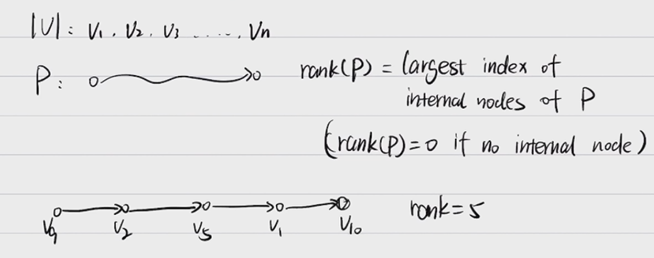 |V|: V₁, V₂, V₃ ....., Vn
P: rank(P) = largest index of
internal nodes of P
(rank(P)=0 if no internal node)
V₉ V₂ V₅ V₁ V₁₀ rank=5